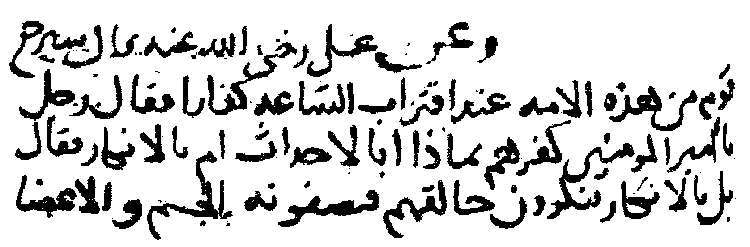 وعن علي رضي الله عنه قال سيرجع
قوم من هذه الامه عند اقتراب الساعه كفارا فقال رجل
يا امير المومنين كفرهم بماذا أبالاحداث ام بالانكار فقال
بل بالانكار ينكرون خالقهم فيصفونه بالجسم والاعضا